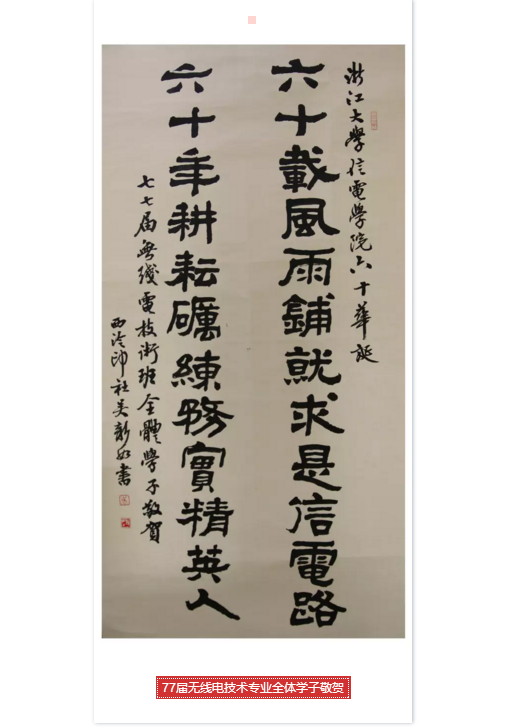 浙江大學信電學院六十華誕
六十載風雨鋪就求是信電路
六十年耕耘礪練務實精英人
七七届無綫電技術班全體學子敬賀
西泠印社吴新如書
77届无线电技术专业全体学子敬贺